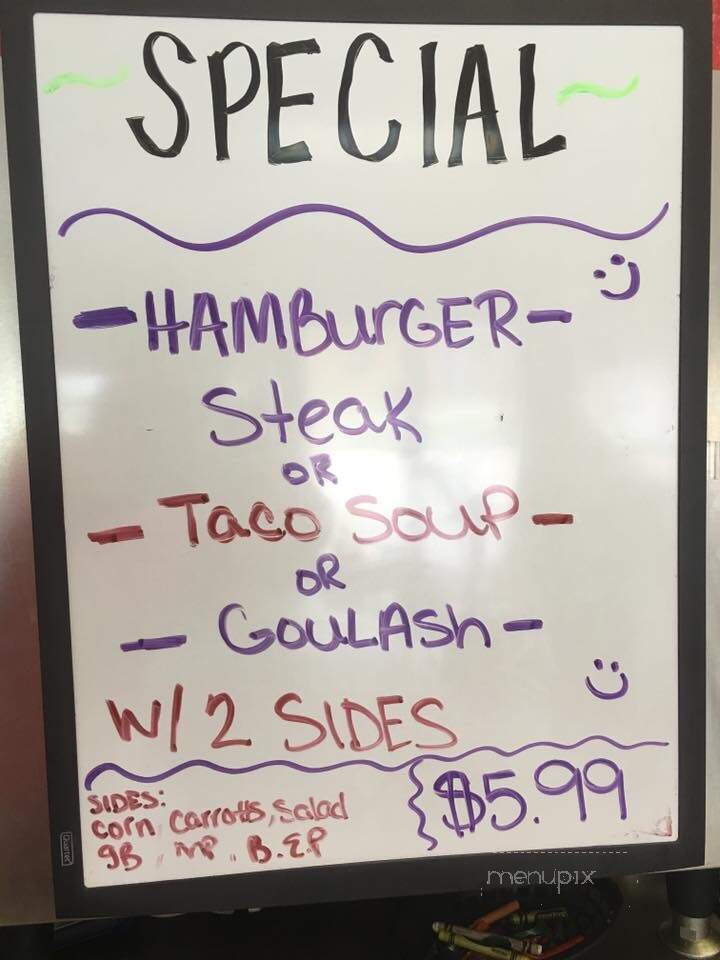 ~ SPECIAL ~
- HAMBurGER -
Steak
OR
- Taco Soup -
OR
- GouLASh -
W/ 2 SIDES
SIDES:
corn, Carrotts, Salad
GB, MP, B.E.P
$5.99
Quartet
menupix